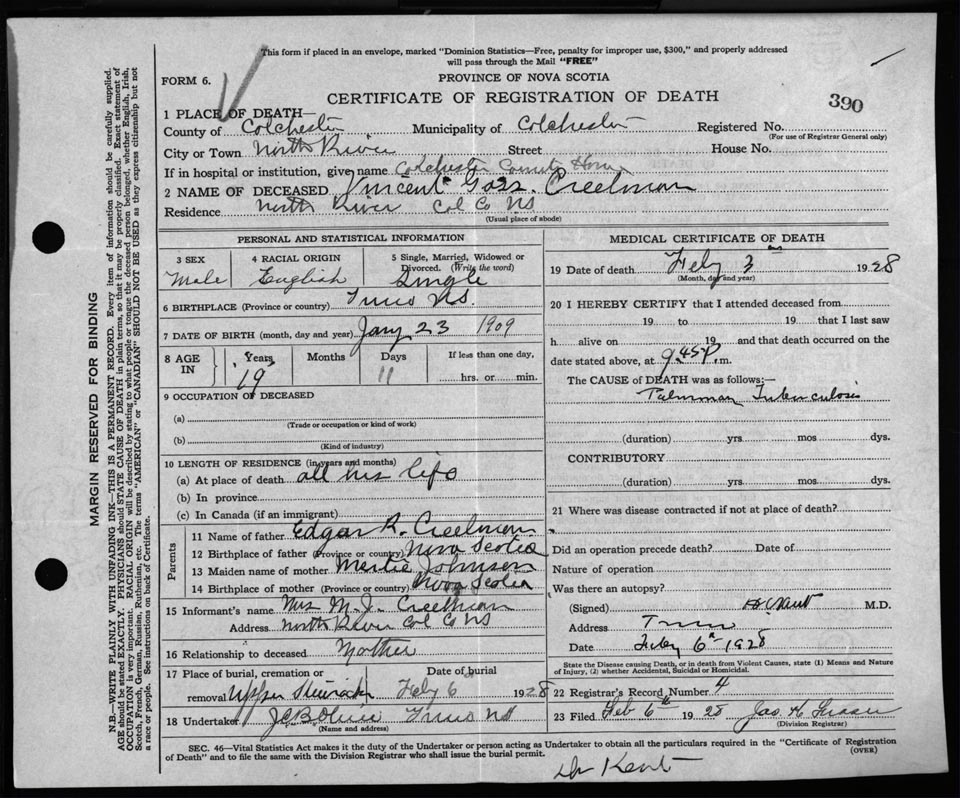 This form if placed in an envelope, marked "Dominion Statistics—Free, penalty for improper use, $300," and properly addressed
will pass through the Mail "FREE"
PROVINCE OF NOVA SCOTIA
FORM 6.
CERTIFICATE OF REGISTRATION OF DEATH
390
1 PLACE OF DEATH—
County of Colchester Municipality of Colchester Registered No.
(For use of Registrar General only)
City or Town North River Street House No.
If in hospital or institution, give name Colchester County Home
2 NAME OF DECEASED Vincent Creelman
Residence North River Col Co NS
(Usual place of abode)
PERSONAL AND STATISTICAL INFORMATION
3 SEX 4 RACIAL ORIGIN 5 Single, Married, Widowed or
Divorced. (Write the word)
Male English Single
6 BIRTHPLACE (Province or country) Truro NS.
7 DATE OF BIRTH (month, day and year) Jany 23 1909
8 AGE IN Years Months Days If less than one day,
19 11 hrs. or min.
9 OCCUPATION OF DECEASED
(a)
(Trade or occupation or kind of work)
(b)
(Kind of industry)
10 LENGTH OF RESIDENCE (in years and months)
(a) At place of death all his life
(b) In province
(c) In Canada (if an immigrant)
Parents
11 Name of father Edgar R. Creelman
12 Birthplace of father (Province or country) Nova Scotia
13 Maiden name of mother Mertie Johnson
14 Birthplace of mother (Province or country) Nova Scotia
15 Informant's name Mrs M. J. Creelman
Address North River Col Co NS
16 Relationship to deceased Mother
17 Place of burial, cremation or Date of burial
removal Upper Feby 6 1928
18 Undertaker Truro NS
(Name and address)
MEDICAL CERTIFICATE OF DEATH
19 Date of death Feby 3 1928
(Month, day and year)
20 I HEREBY CERTIFY that I attended deceased from
19 to 19 that I last saw
h alive on 19 and that death occurred on the
date stated above, at 9.45P. m.
The CAUSE of DEATH was as follows:—
Pulmonary Tuberculosis
(duration) yrs. mos dys.
CONTRIBUTORY
(duration) yrs. mos dys.
21 Where was disease contracted if not at place of death?
Did an operation precede death? Date of
Nature of operation
Was there an autopsy?
(Signed) Kent M.D.
Address Truro
Date Feby 6th 1928
State the Disease causing Death, or in death from Violent Causes, state (1) Means and Nature
of Injury, (2) whether Accidental, Suicidal or Homicidal.
22 Registrar's Record Number 4
23 Filed Feb 6th 1928 Jas. H. Fraser
(Division Registrar)
SEC. 46—Vital Statistics Act makes it the duty of the Undertaker or person acting as Undertaker to obtain all the particulars required in the "Certificate of Registration
of Death" and to file the same with the Division Registrar who shall issue the burial permit.
(OVER)
Dr Kent
MARGIN RESERVED FOR BINDING
N.B.—WRITE PLAINLY WITH UNFADING INK—THIS IS A PERMANENT RECORD. Every item of information should be carefully supplied.
AGE should be stated EXACTLY. PHYSICIANS should STATE CAUSE OF DEATH in plain terms, so that it may be properly classified. Exact statement of
OCCUPATION is very important. RACIAL ORIGIN will be described by stating to what people or tongue the deceased person belonged, whether English, Irish,
Scotch, French, German, Russian, Ruthenian, etc. The terms "AMERICAN" or "CANADIAN" SHOULD NOT BE USED as they express citizenship but not
a race or people. See instructions on back of Certificate.